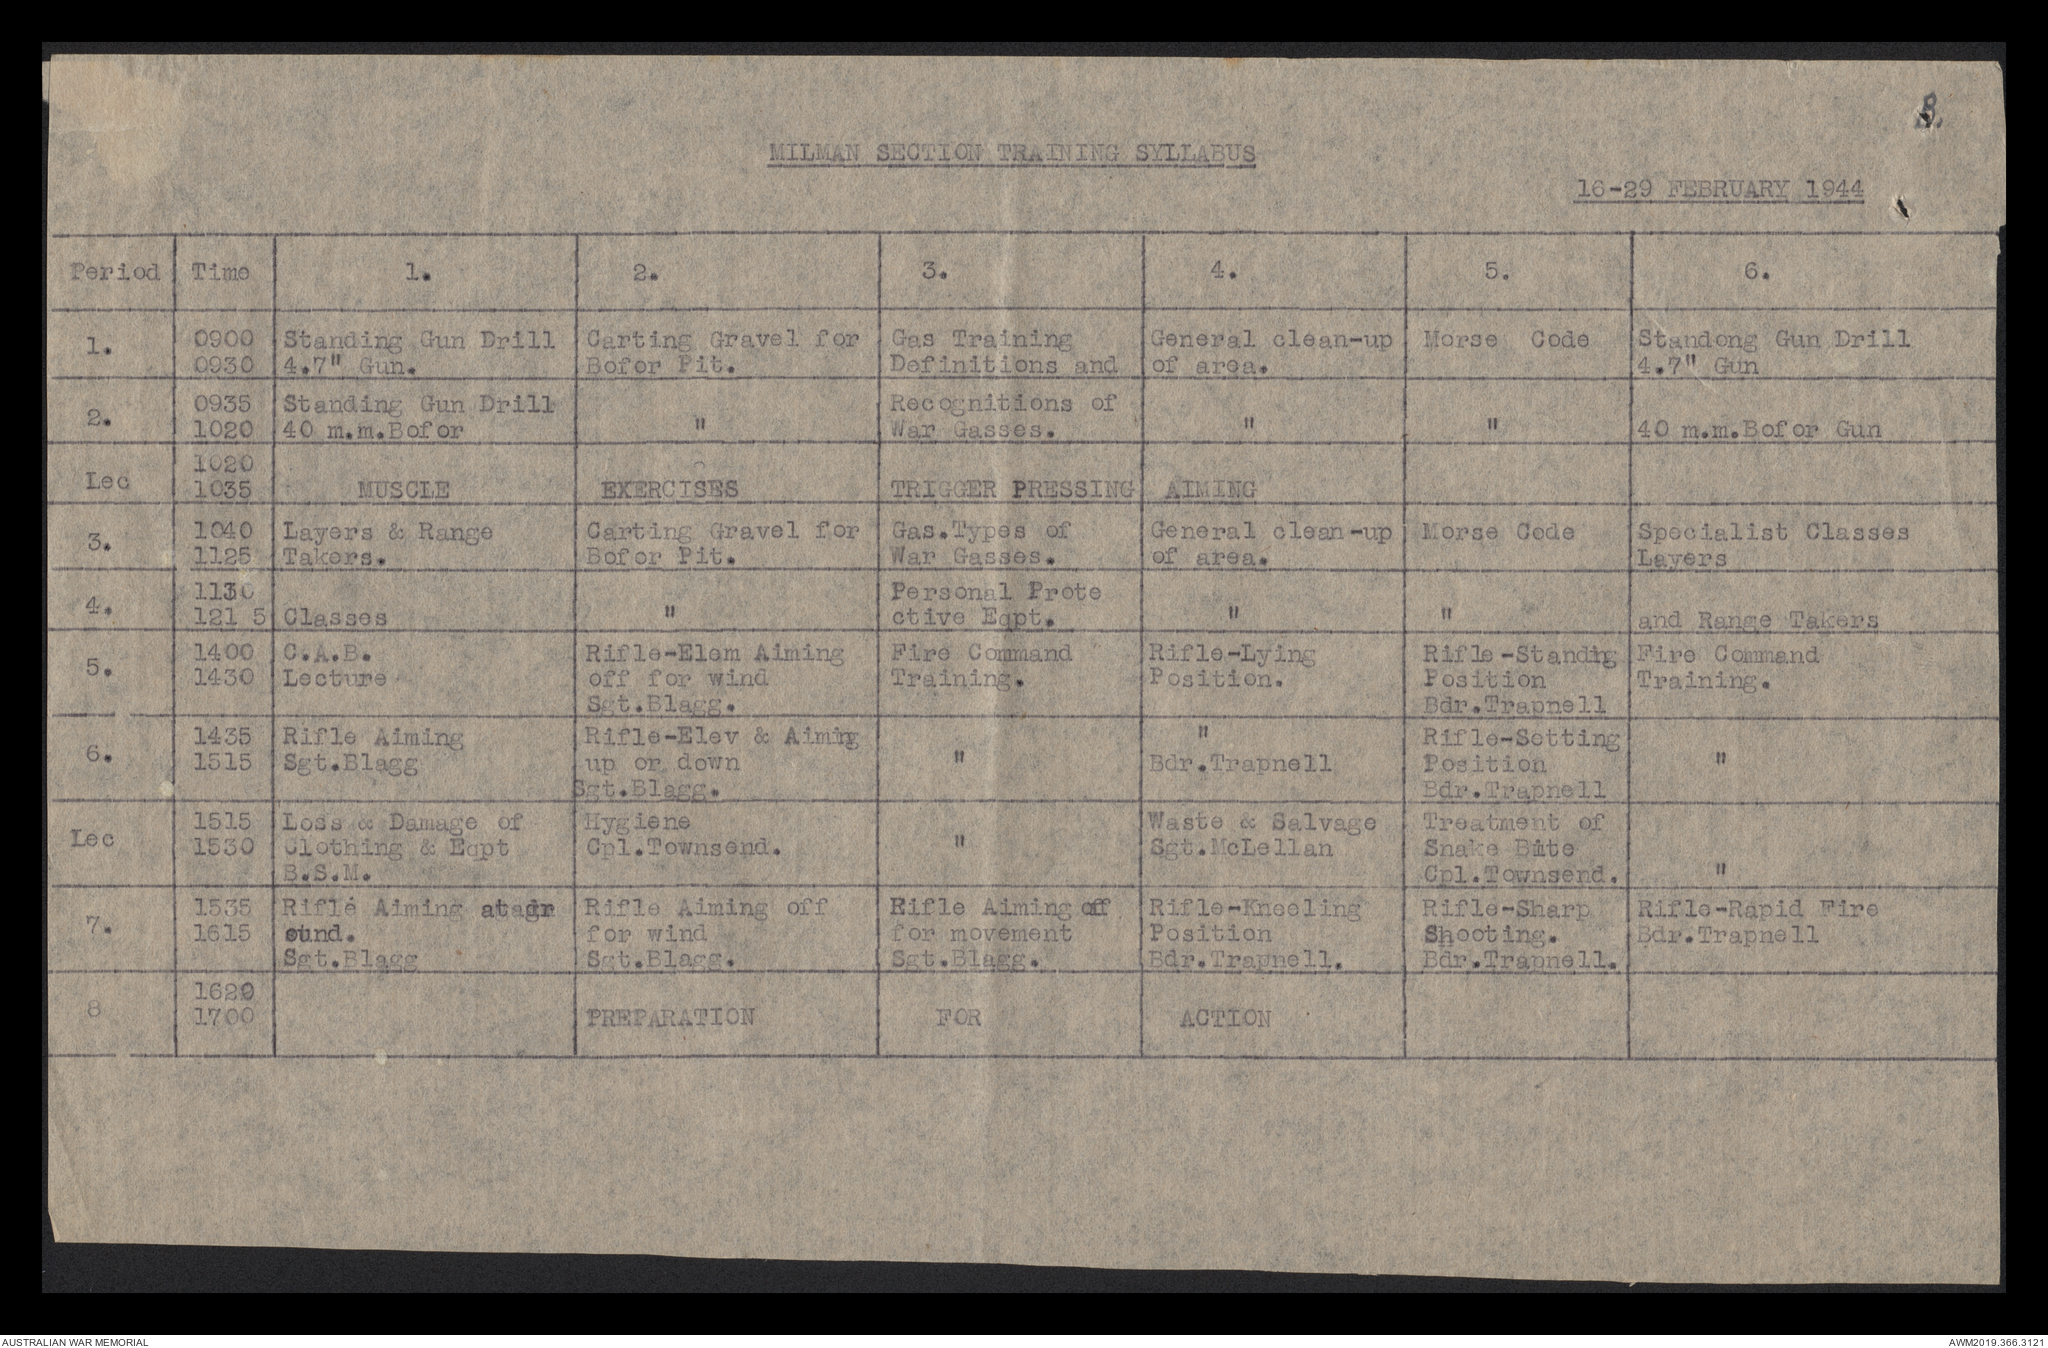 8.
MILMAN SECTION TRAINING SYLLABUS
16-29 FEBRUARY 1944
Period Time 1. 2. 3. 4. 5. 6.
1. 0900 Standing Gun Drill Carting Gravel for Gas Training General clean-up Morse Code Standong Gun Drill
0930 4.7" Gun. Bofor Pit. Definitions and of area. 4.7" Gun
2. 0935 Standing Gun Drill Recognitions of
1020 40 m.m.Bofor " War Gasses. " " 40 m.m.Bofor Gun
Lec 1020
1035 MUSCLE EXERCISES TRIGGER PRESSING AIMING
3. 1040 Layers & Range Carting Gravel for Gas.Types of General clean-up Morse Code Specialist Classes
1125 Takers. Bofor Pit. War Gasses. of area. Layers
4. 1130 Personal Prote
1215 Classes " ctive Eqpt. " " and Range Takers
5. 1400 C.A.B. Rifle-Elem Aiming Fire Command Rifle-Lying Rifle-Standing Fire Command
1430 Lecture off for wind Training. Position. Position Training.
Sgt.Blagg. Bdr.Trapnell
6. 1435 Rifle Aiming Rifle-Elev & Aiming " Rifle-Setting
1515 Sgt.Blagg up or down " Bdr.Trapnell Position "
Sgt.Blagg. Bdr.Trapnell
Lec 1515 Loss & Damage of Hygiene Waste & Salvage Treatment of
1530 Clothing & Eqpt Cpl.Townsend. " Sgt.McLellan Snake Bite
B.S.M. Cpl.Townsend. "
7. 1535 Rifle Aiming Rifle Aiming off Rifle Aiming off Rifle-Kneeling Rifle-Sharp Rifle-Rapid Fire
1615 for wind for movement Position Shooting. Bdr.Trapnell
Sgt.Blagg Sgt.Blagg. Sgt.Blagg. Bdr.Trapnell. Bdr.Trapnell.
8 1620
1700 PREPARATION FOR ACTION
AUSTRALIAN WAR MEMORIAL AWM2019.366.3121